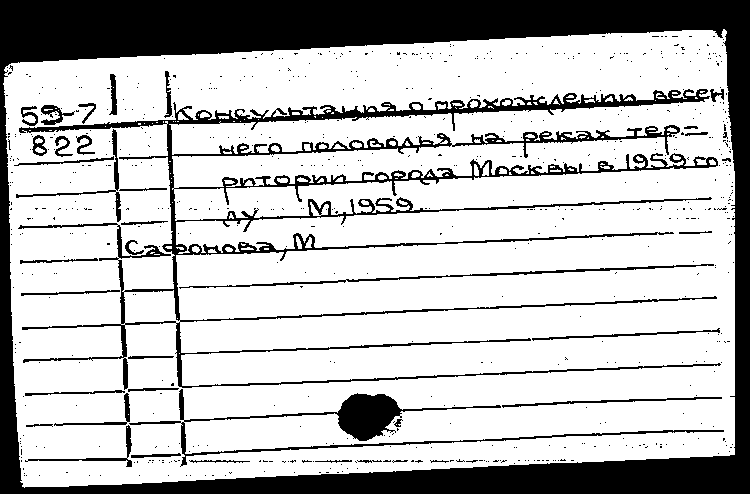 59-7 Консультация о прохождении весен
822 него половодья на реках тер-
ритории города Москвы в 1959 го-
ду М., 1959.
Сафонова, М